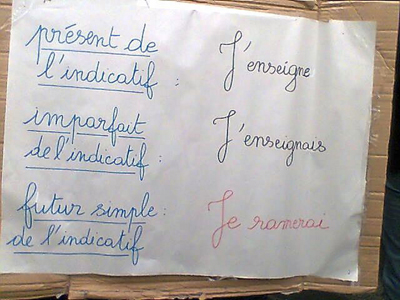 présent de
l'indicatif : J'enseigne
imparfait
de l'indicatif : J'enseignais
futur simple :
de l'indicatif Je ramerai